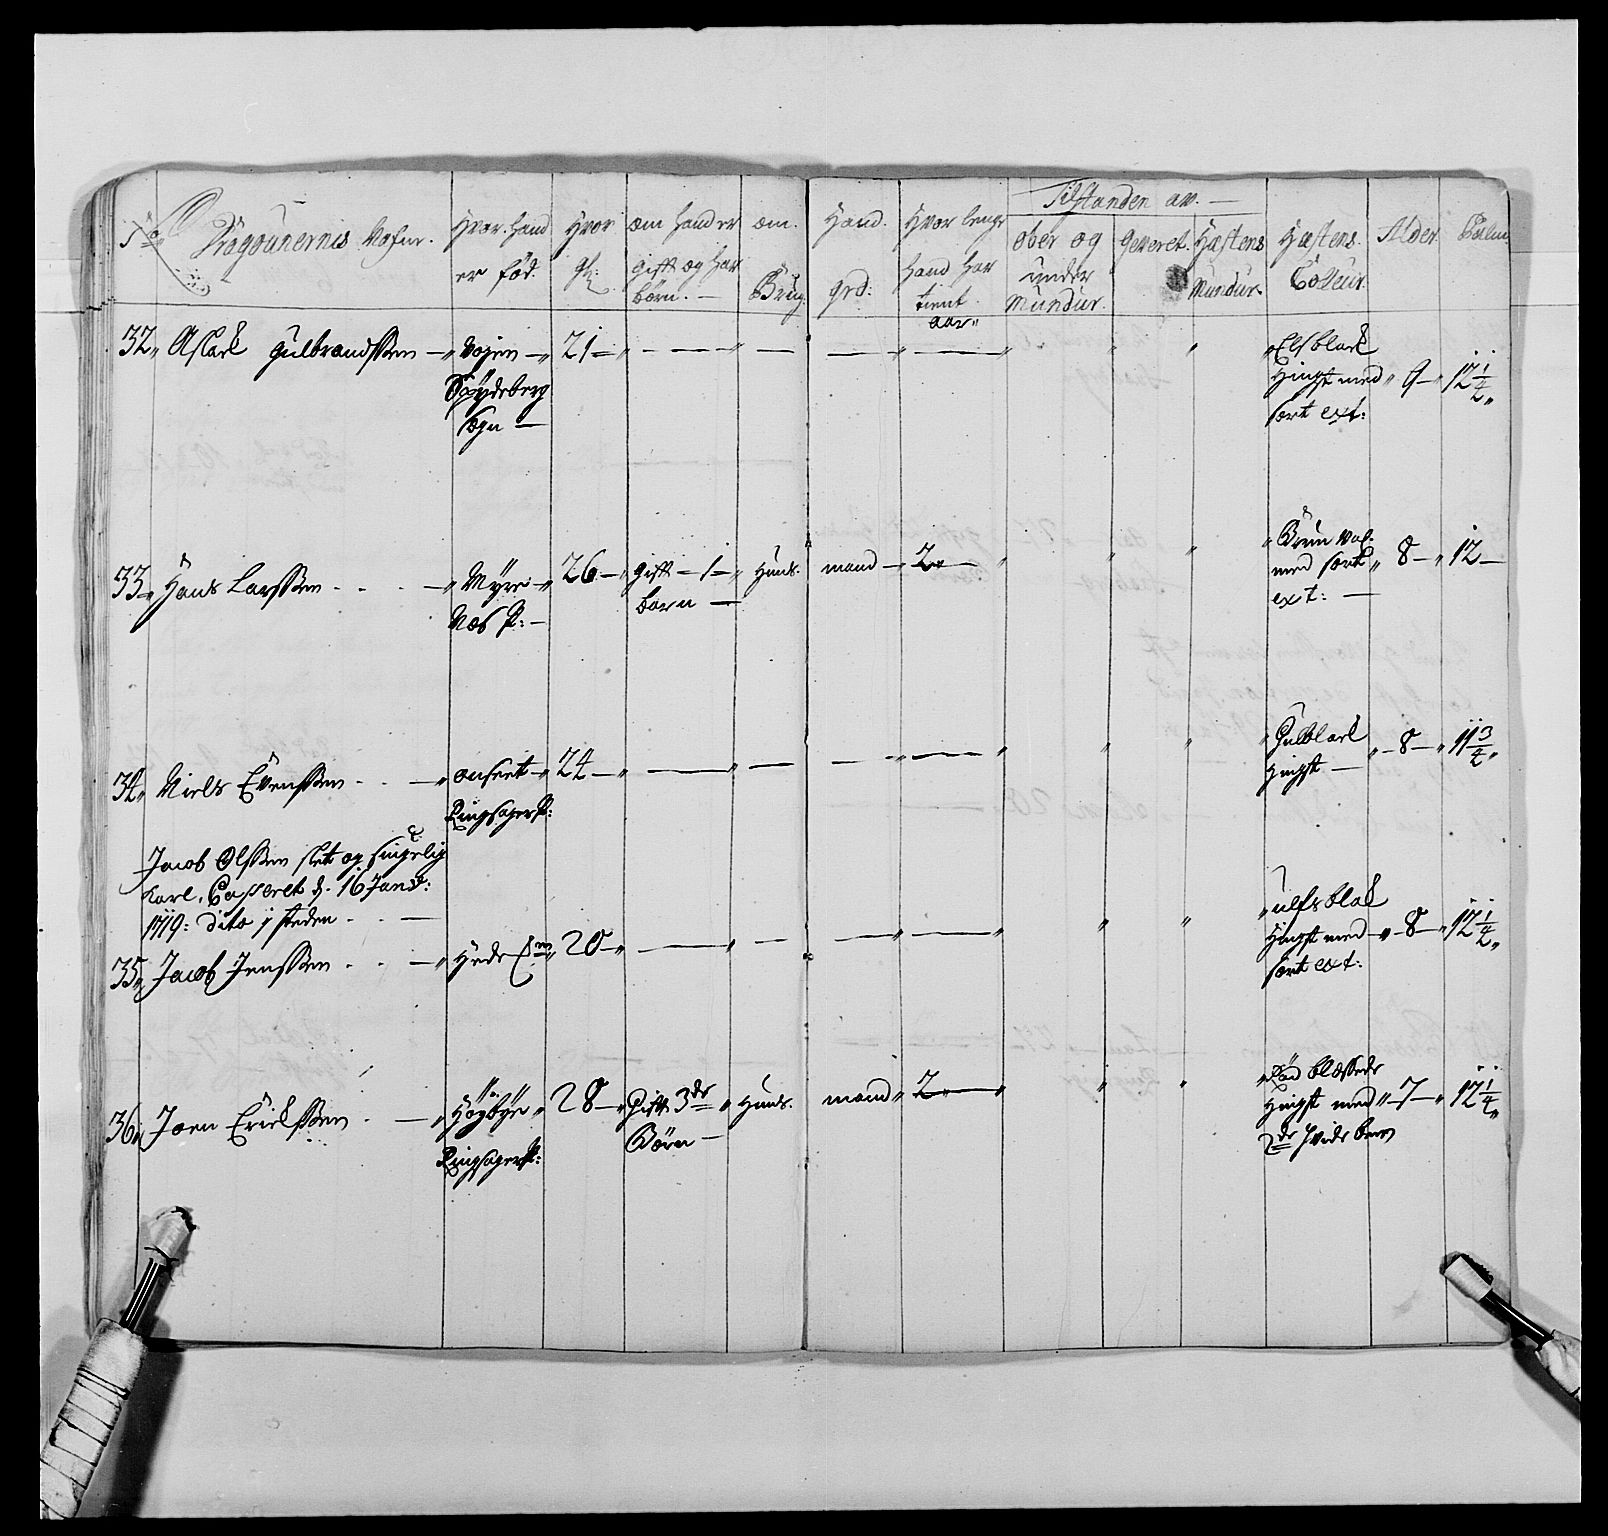 No Dragounernis Nafne. Hvor hand er fød. Hvor gl: om hand er gift og har børn. — om Brug. Hand. grd: Hvor lenge hand har tient aar. Tilstanden av. — ober og under Mundur. Geveret. Hæstens Mundur. Hæstens Coleur. Alder.
32, Aslack Gulbrandssen — Spydeberg Sogn — 21 — — — — — Elsblack Hingst med sort ext: 9 — 12 1/4
33, Hans Larssen — Myre Næs P: — 26 — gift — 1 — barn — Huus mand — 2 — Brun Val. med sort ext: — 8 — 12 —
34, Niels Evenssen — Ringsager P: 24 — — — — — Gulblack Hingst — 8 — 11 3/4
Jacob Olssen slet og
Karl, Casseret d. 16 Janv:
1719: dito i steden — —
35, Jacob Jenssen — 20 — — — — — ulfsblak Hingst med sort ext: 8 — 12 1/4
36, Joen Erickssen — Høybye Ringsager P: 28 — Gift 3de Børn — Huus mand 2 — Rød blessede Hingst med 2de hvide been 7 — 12 1/4